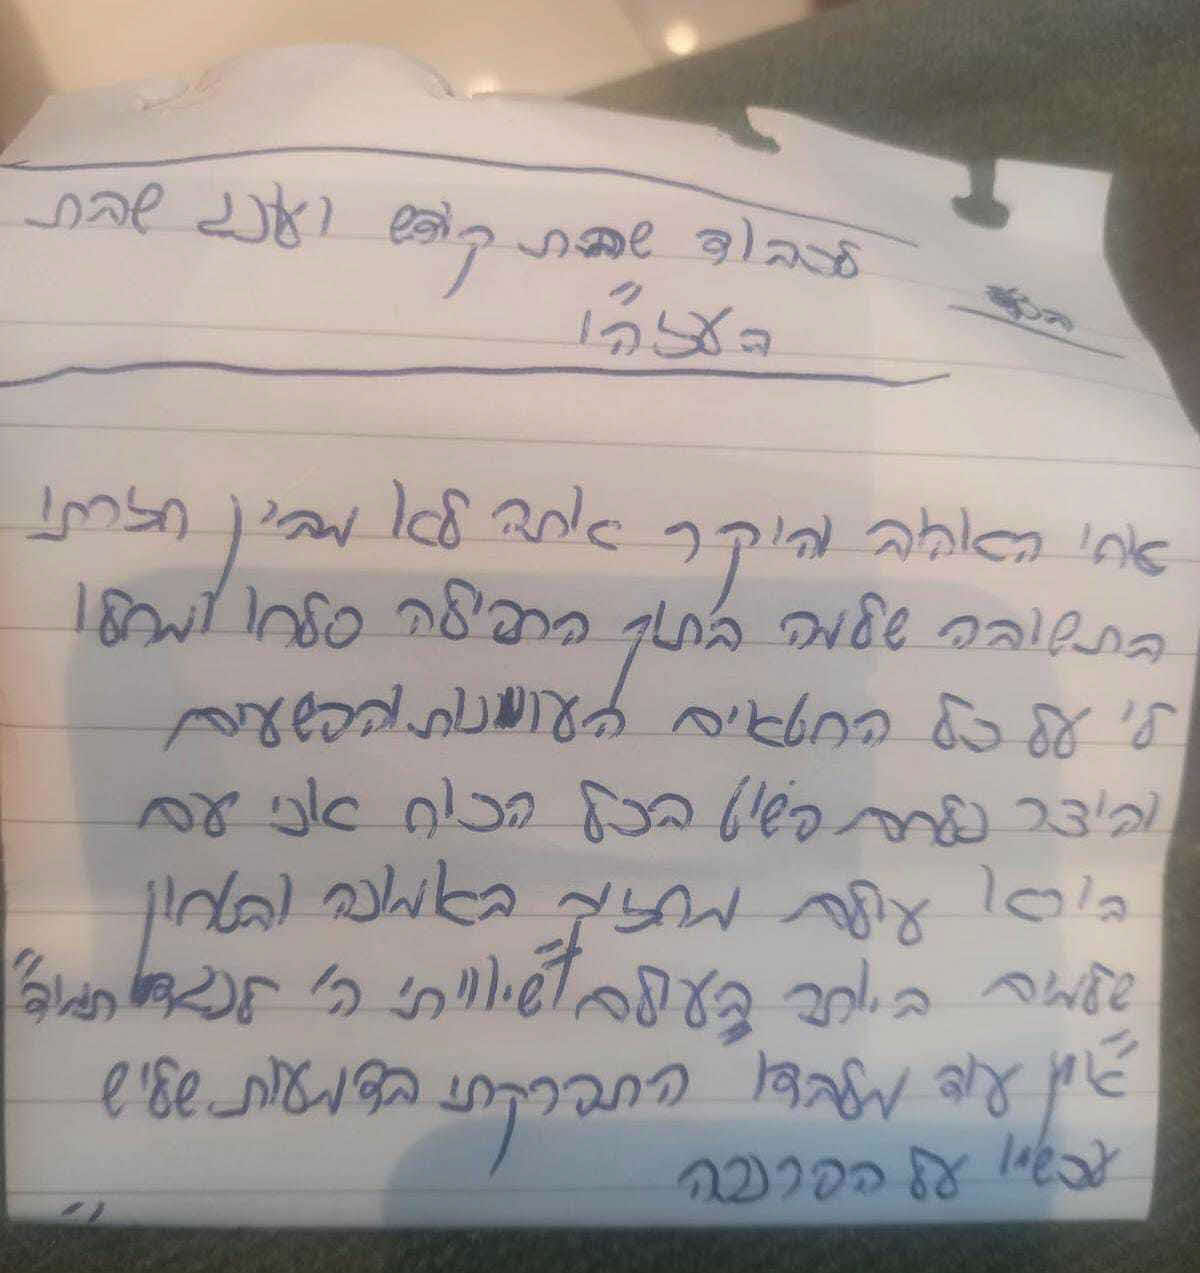 לכבוד שבת קודש ועונג שבת
בעזה"י
אחי האהוב והיקר אתה לא מבין חזרתי
בתשובה שלמה בתוך התפילה סלחו ומחלו
לי על כל החטאים העוונות והפשעים
והיצר נלחם פשוט בכל הכוח אני עם
בורא עולם מחזיק באמונה ובטחון
שלמים ביותר בעולם "שיוויתי ה' לנגדי תמיד"
"אין עוד מלבדו התפרקתי בדמעות שליש
עכשיו על הפרוכת